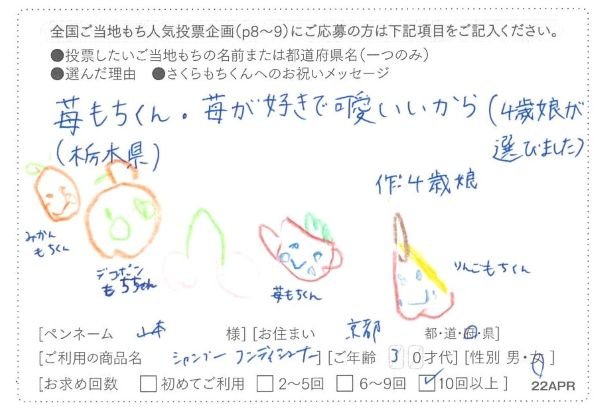 全国ご当地もち人気投票企画(p8〜9)にご応募の方は下記項目をご記入ください。
●投票したいご当地もちの名前または都道府県名(一つのみ)
●選んだ理由 ●さくらもちくんへのお祝いメッセージ
苺もちくん。苺が好きで可愛いいから(4歳娘が
(栃木県) 選びました)
作:4歳娘
みかん
もちくん
デコポン
もちくん
苺もちくん
りんごもちくん
[ペンネーム 山本 様] [お住まい 京都 都・道・府・県]
[ご利用の商品名 シャンプー コンディショナー] [ご年齢 30才代] [性別 男・女]
[お求め回数 □初めてご利用 □2〜5回 □6〜9回 ☑10回以上] 22APR